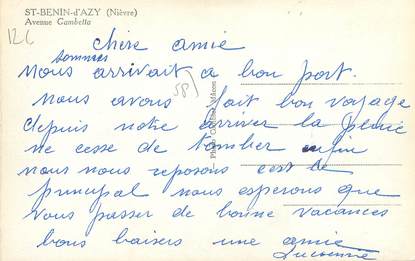 ST-BENIN-d'AZY (Nièvre)
Avenue Gambetta
126
chère amie
sommes
Nous arrivait a bon port.
nous avons fait bon voyage
depuis notre arriver la pluie
ne cesse de tomber enfin
nous nous reposons c'est le
principal nous esperons que
vous passer de bonne vacances
bons baisers une amie
Lucienne
58
Photo